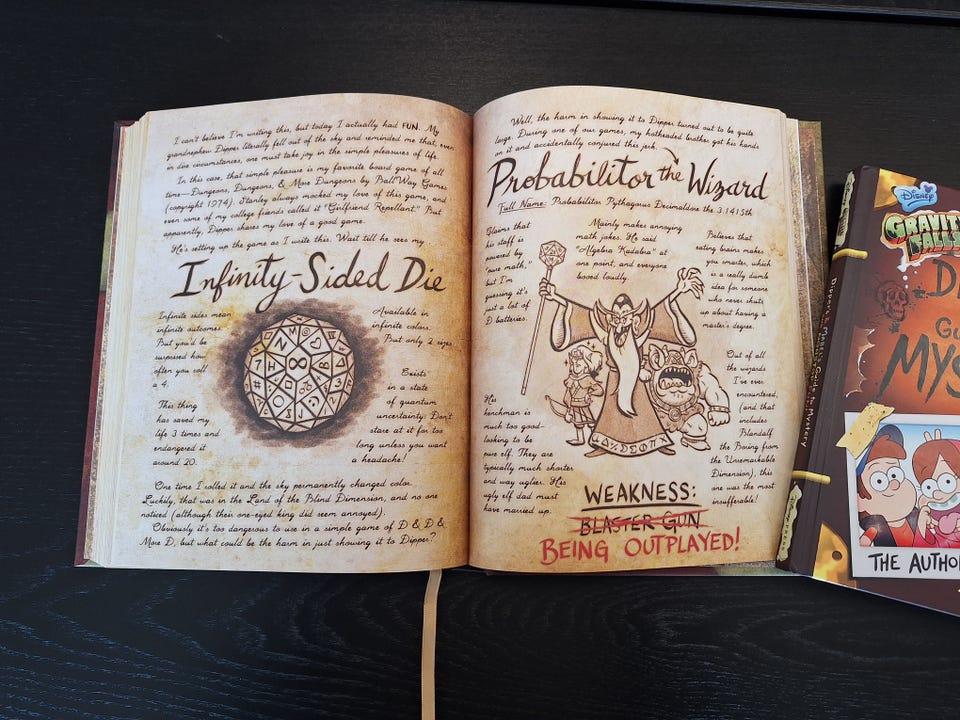 I can't believe I'm writing this, but today I actually had FUN. My
grandnephew Dipper literally fell out of the sky and reminded me that, even
in dire circumstances, one must take joy in the simple pleasures of life.
In this case, that simple pleasure is my favorite board game of all
time—Dungeons, Dungeons, & More Dungeons by BallWay Games
(copyright 1974). Stanley always mocked my love of this game, and
even some of my college friends called it "Girlfriend Repellant." But
apparently, Dipper shares my love of a good game.
He's setting up the game as I write this. Wait till he sees my
Infinity-Sided Die
Infinite sides mean
infinite outcomes.
But you'd be
surprised how
often you roll
a 4.
This thing
has saved my
life 3 times and
endangered it
around 20.
Available in
infinite colors.
But only 2 sizes
Exists
in a state
of quantum
uncertainty. Don't
stare at it for too
long unless you want
a headache!
One time I rolled it and the sky permanently changed color.
Luckily, that was in the Land of the Blind Dimension, and no one
noticed (although their one-eyed king did seem annoyed).
Obviously it's too dangerous to use in a simple game of D & D &
More D, but what could be the harm in just showing it to Dipper?
Well, the harm in showing it to Dipper turned out to be quite
large. During one of our games, my hotheaded brother got his hands
on it and accidentally conjured this jerk.
Probabilitor the Wizard
Full Name: Probabilitor Pythagorus Decimaldore the 3.1415th
Claims that
his staff is
powered by
"pure math,"
but I'm
guessing it's
just a lot of
D batteries.
Mainly makes annoying
math jokes. He said
"Algebra Kadabra" at
one point, and everyone
booed loudly.
Believes that
eating brains makes
you smarter, which
is a really dumb
idea for someone
who never shuts
up about having a
master's degree.
His
henchman is
much too good-
looking to be
pure elf. They are
typically much shorter
and way uglier. His
ugly elf dad must
have married up.
Out of all
the wizards
I've ever
encountered,
(and that
includes
Blandalf
the Boring from
the Unremarkable
Dimension), this
one was the most
insufferable!
WEAKNESS:
BLASTER GUN
BEING OUTPLAYED!
Disney
GRAVITY
FALLS
MYS
THE AUTHO